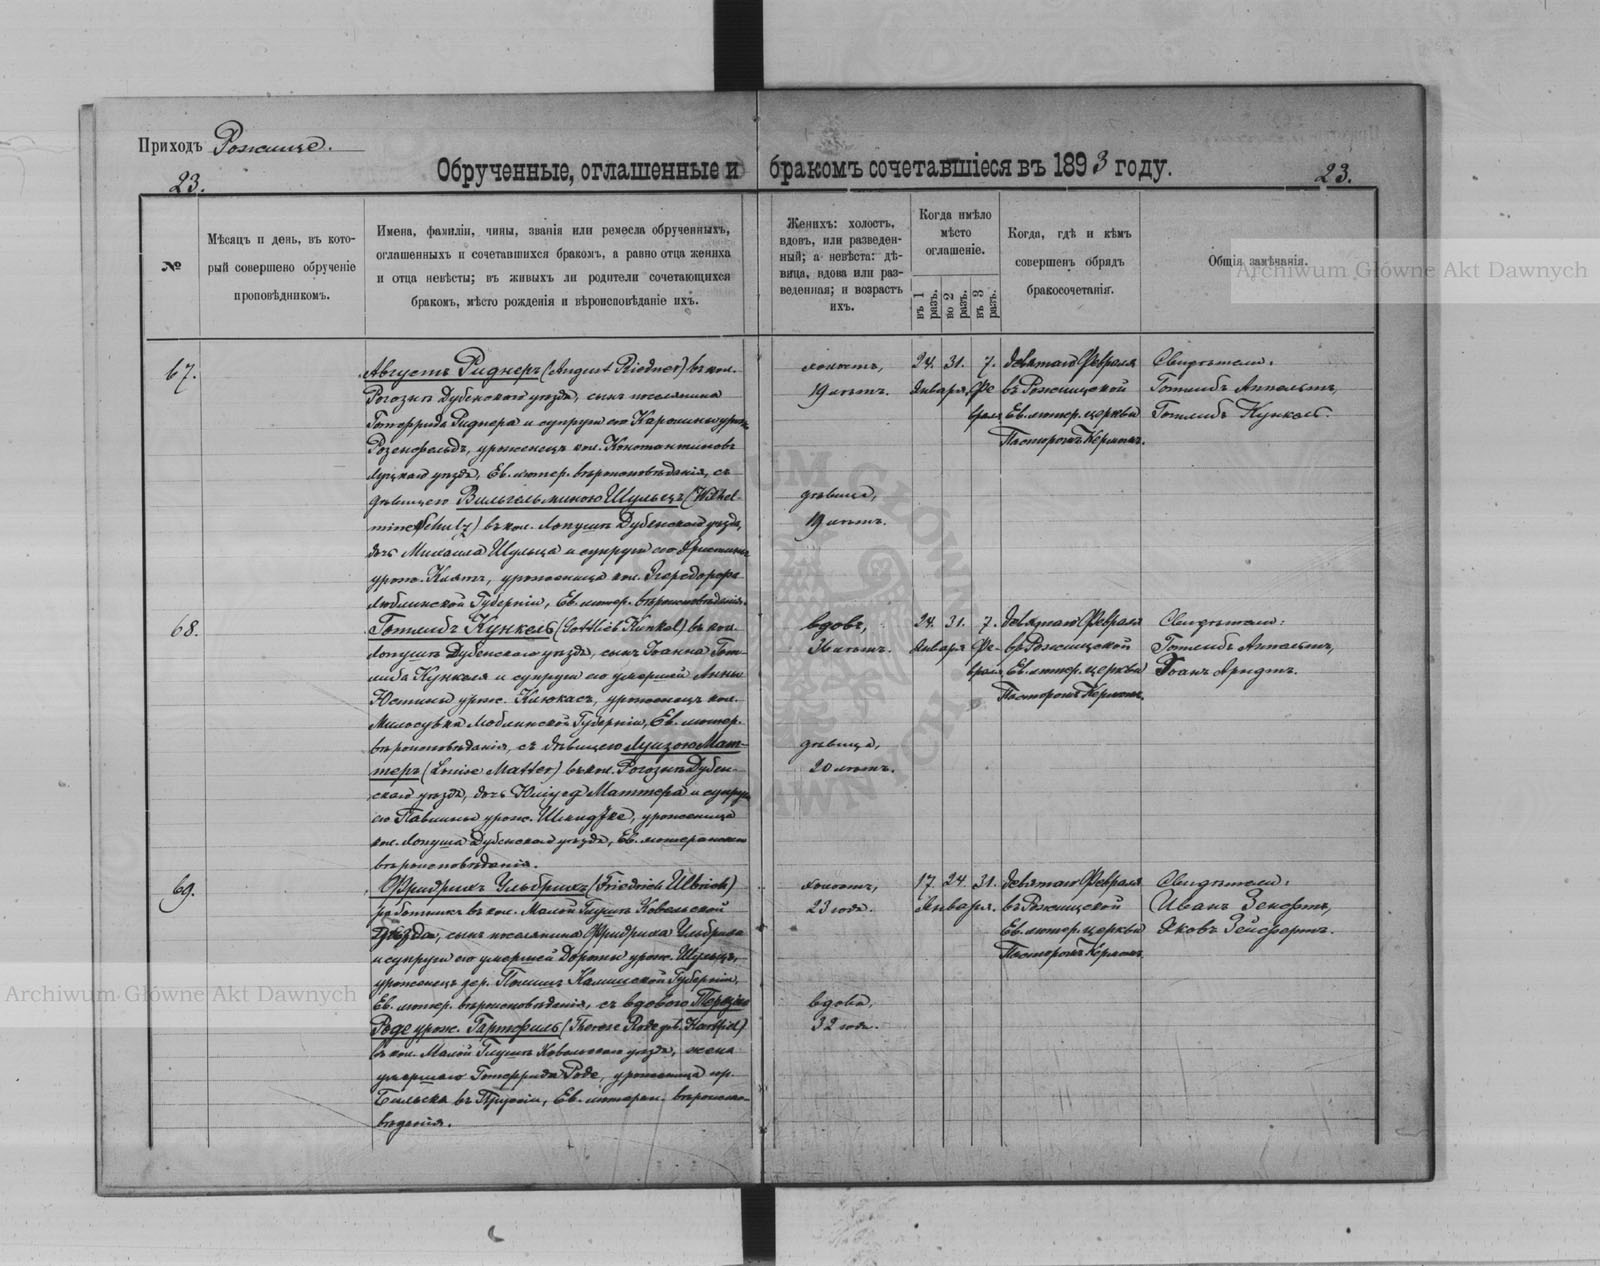 Приходъ Рожище.
Обрученные, оглашенные и бракомъ сочетавшіеся въ 1893 году.
23.
23.
№
Мѣсяцъ и день, въ кото-
рый совершено обрученіе
проповѣдникомъ.
Имена, фамиліи, чины, званія или ремесла обрученныхъ,
оглашенныхъ и сочетавшихся бракомъ, а равно отца жениха
и отца невѣсты; въ живыхъ ли родители сочетающихся
бракомъ, мѣсто рожденія и вѣроисповѣданіе ихъ.
Женихъ: холостъ,
вдовъ, или разведен-
ный; а невѣста: дѣ-
вица, вдова или раз-
веденная; и возрастъ
ихъ.
Когда имѣло
мѣсто
оглашеніе.
въ 1 разъ.
во 2 разъ.
въ 3 разъ.
Когда, гдѣ и кѣмъ
совершенъ обрядъ
бракосочетанія.
Общія замѣчанія.
Archiwum Główne Akt Dawnych
67.
Августъ Риднеръ (August Riedner) въ кол.
Рогознѣ Дубенскаго уѣзда, сынъ поселянина
Готфрида Риднера и супруги его Каролины урож.
Розенфельдъ, уроженецъ кол. Константиновъ
Луцкаго уѣзда, Ев. лютер. вѣроисповѣданія, съ
дѣвицею Вильгельминою Шульцъ (Wilhel-
mine Schulz) въ кол. Лопушъ Дубенскаго уѣзда,
дочь Михаила Шульца и супруги его Христины
урож. Клятъ, уроженица кол.
Люблинской Губерніи, Ев. лютер. вѣроисповѣданія.
холостъ,
19 лѣтъ.
дѣвица,
19 лѣтъ.
24. 31. 7.
Января. Фе-
враля
девятаго Февраля
въ Рожищской
Ев. лютер. церкви
Пасторомъ Керномъ.
Свидѣтели:
Готлибъ Аппельтъ,
Готлибъ Кункель.
68.
Готлибъ Кункель (Gottlieb Kunkel) въ кол.
Лопушъ Дубенскаго уѣзда, сынъ Іоанна Гот-
либа Кункеля и супруги его умершей Анны
Юстины урож. Клюкасъ, уроженецъ кол.
Милосувка Люблинской Губерніи, Ев. лютер.
вѣроисповѣданія, съ дѣвицею Луизою Мат-
теръ (Louise Matter) въ кол. Рогознѣ Дубен-
скаго уѣзда, дочь Матера и супруги
его Павлины урож. уроженица
кол. Лопуша Дубенскаго уѣзда, Ев. лютеранскаго
вѣроисповѣданія.
вдовъ,
36 лѣтъ.
дѣвица,
20 лѣтъ.
24. 31. 7.
Января Фе-
враля
девятаго Февраля
въ Рожищской
Ев. лютер. церкви
Пасторомъ Керномъ.
Свидѣтели:
Готлибъ Аппельтъ,
Іоанъ Арндтъ.
69.
Фридрихъ Ульбрихъ (Friedrich Ulbrich)
работникъ въ кол. Малой Глушѣ Ковельской
уѣзда, сынъ поселянина Фридриха Ульбриха
и супруги его умершей Дороты урож. Шульцъ,
уроженецъ дер. Калишской Губерніи,
Ев. лютер. вѣроисповѣданія, съ вдовою Терезою
Роде урож. Гартфиль (Therese Rode geb. Hartfiel)
въ кол. Малой Глушѣ Ковельскаго уѣзда, жена
умершаго Готфрида Роде, уроженица
Бильска въ Пруссіи, Ев. лютеран. вѣроиспо-
вѣданія.
холостъ,
23 года.
вдова,
32 года.
17. 24. 31.
Января.
девятаго Февраля
въ Рожищской
Ев. лютер. церкви
Пасторомъ Керномъ.
Свидѣтели:
Иванъ
Яковъ Зейфертъ.
Archiwum Główne Akt Dawnych